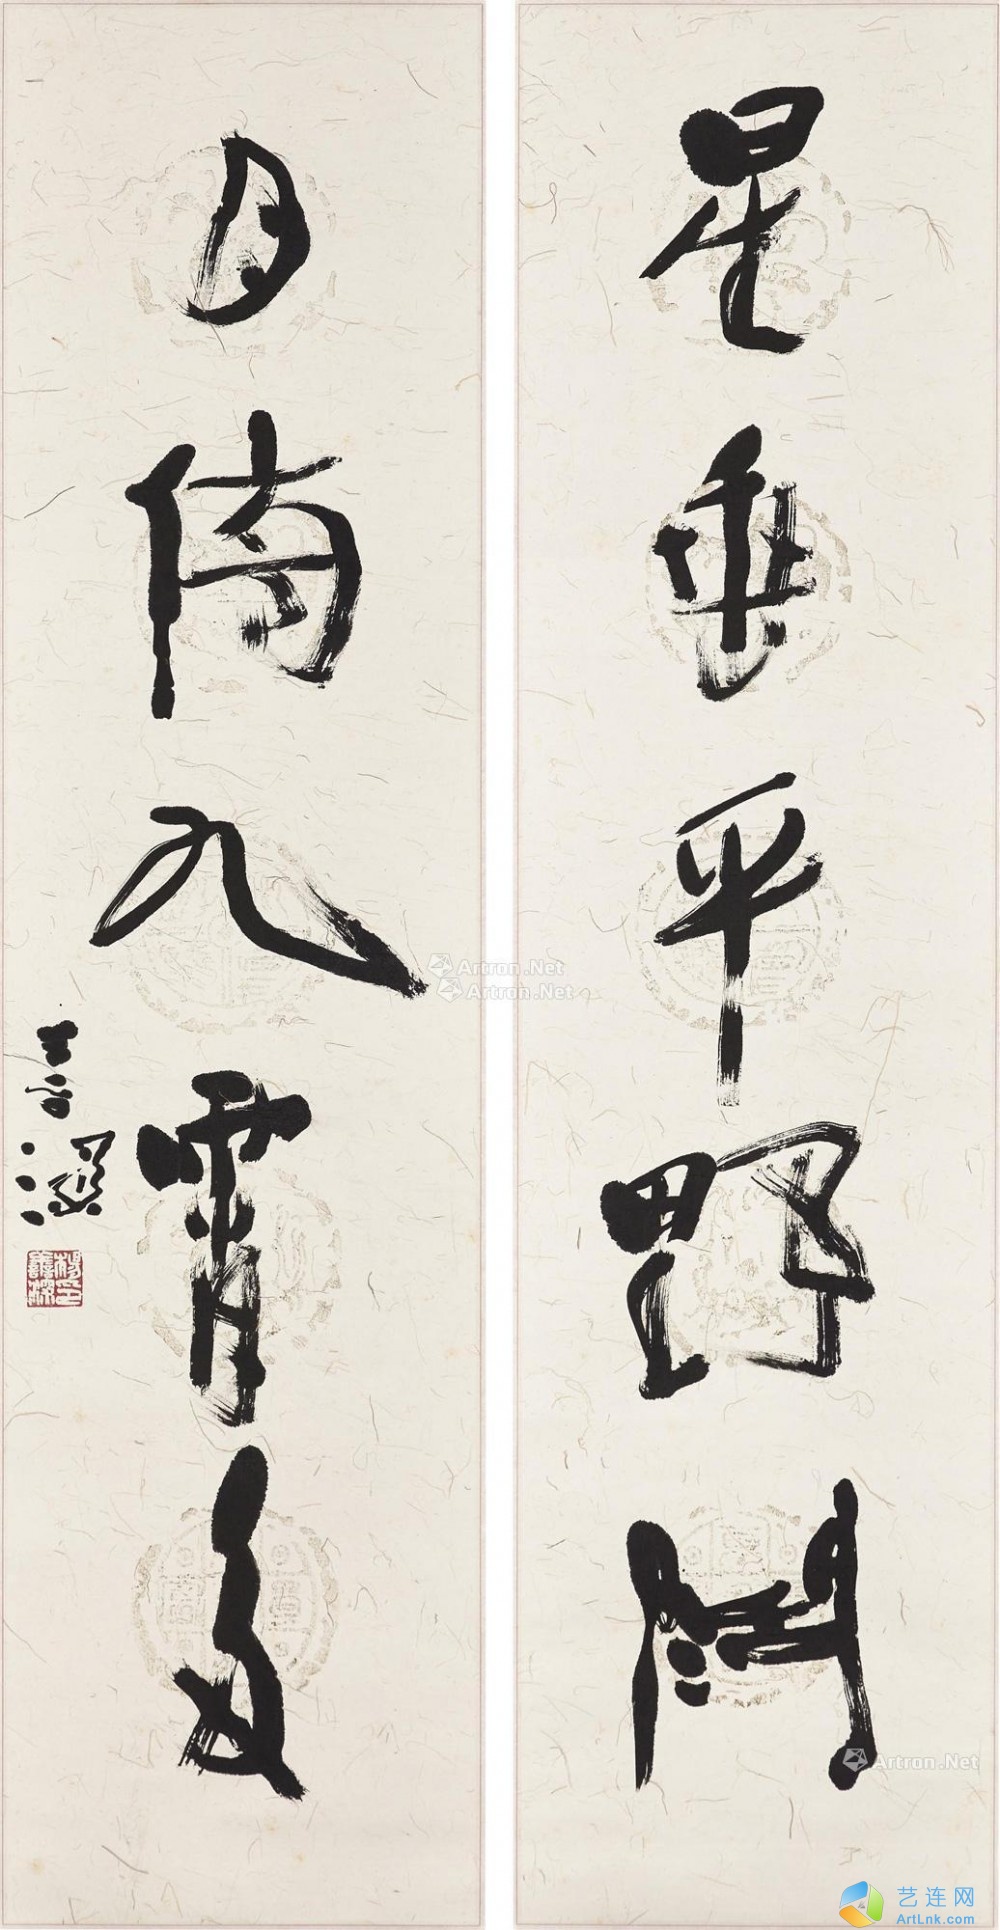 星垂平野闊
月傍九霄多
善深
楊善深印
Artron.Net
Artron.Net
Artron.Net
艺连网
ArtLnk.com